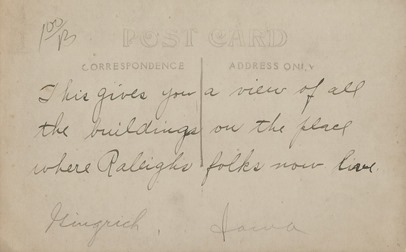 POST CARD
CORRESPONDENCE ADDRESS ONLY
This gives you a view of all
the buildings on the place
where Raleighs folks now live.
Gingrich, Iowa